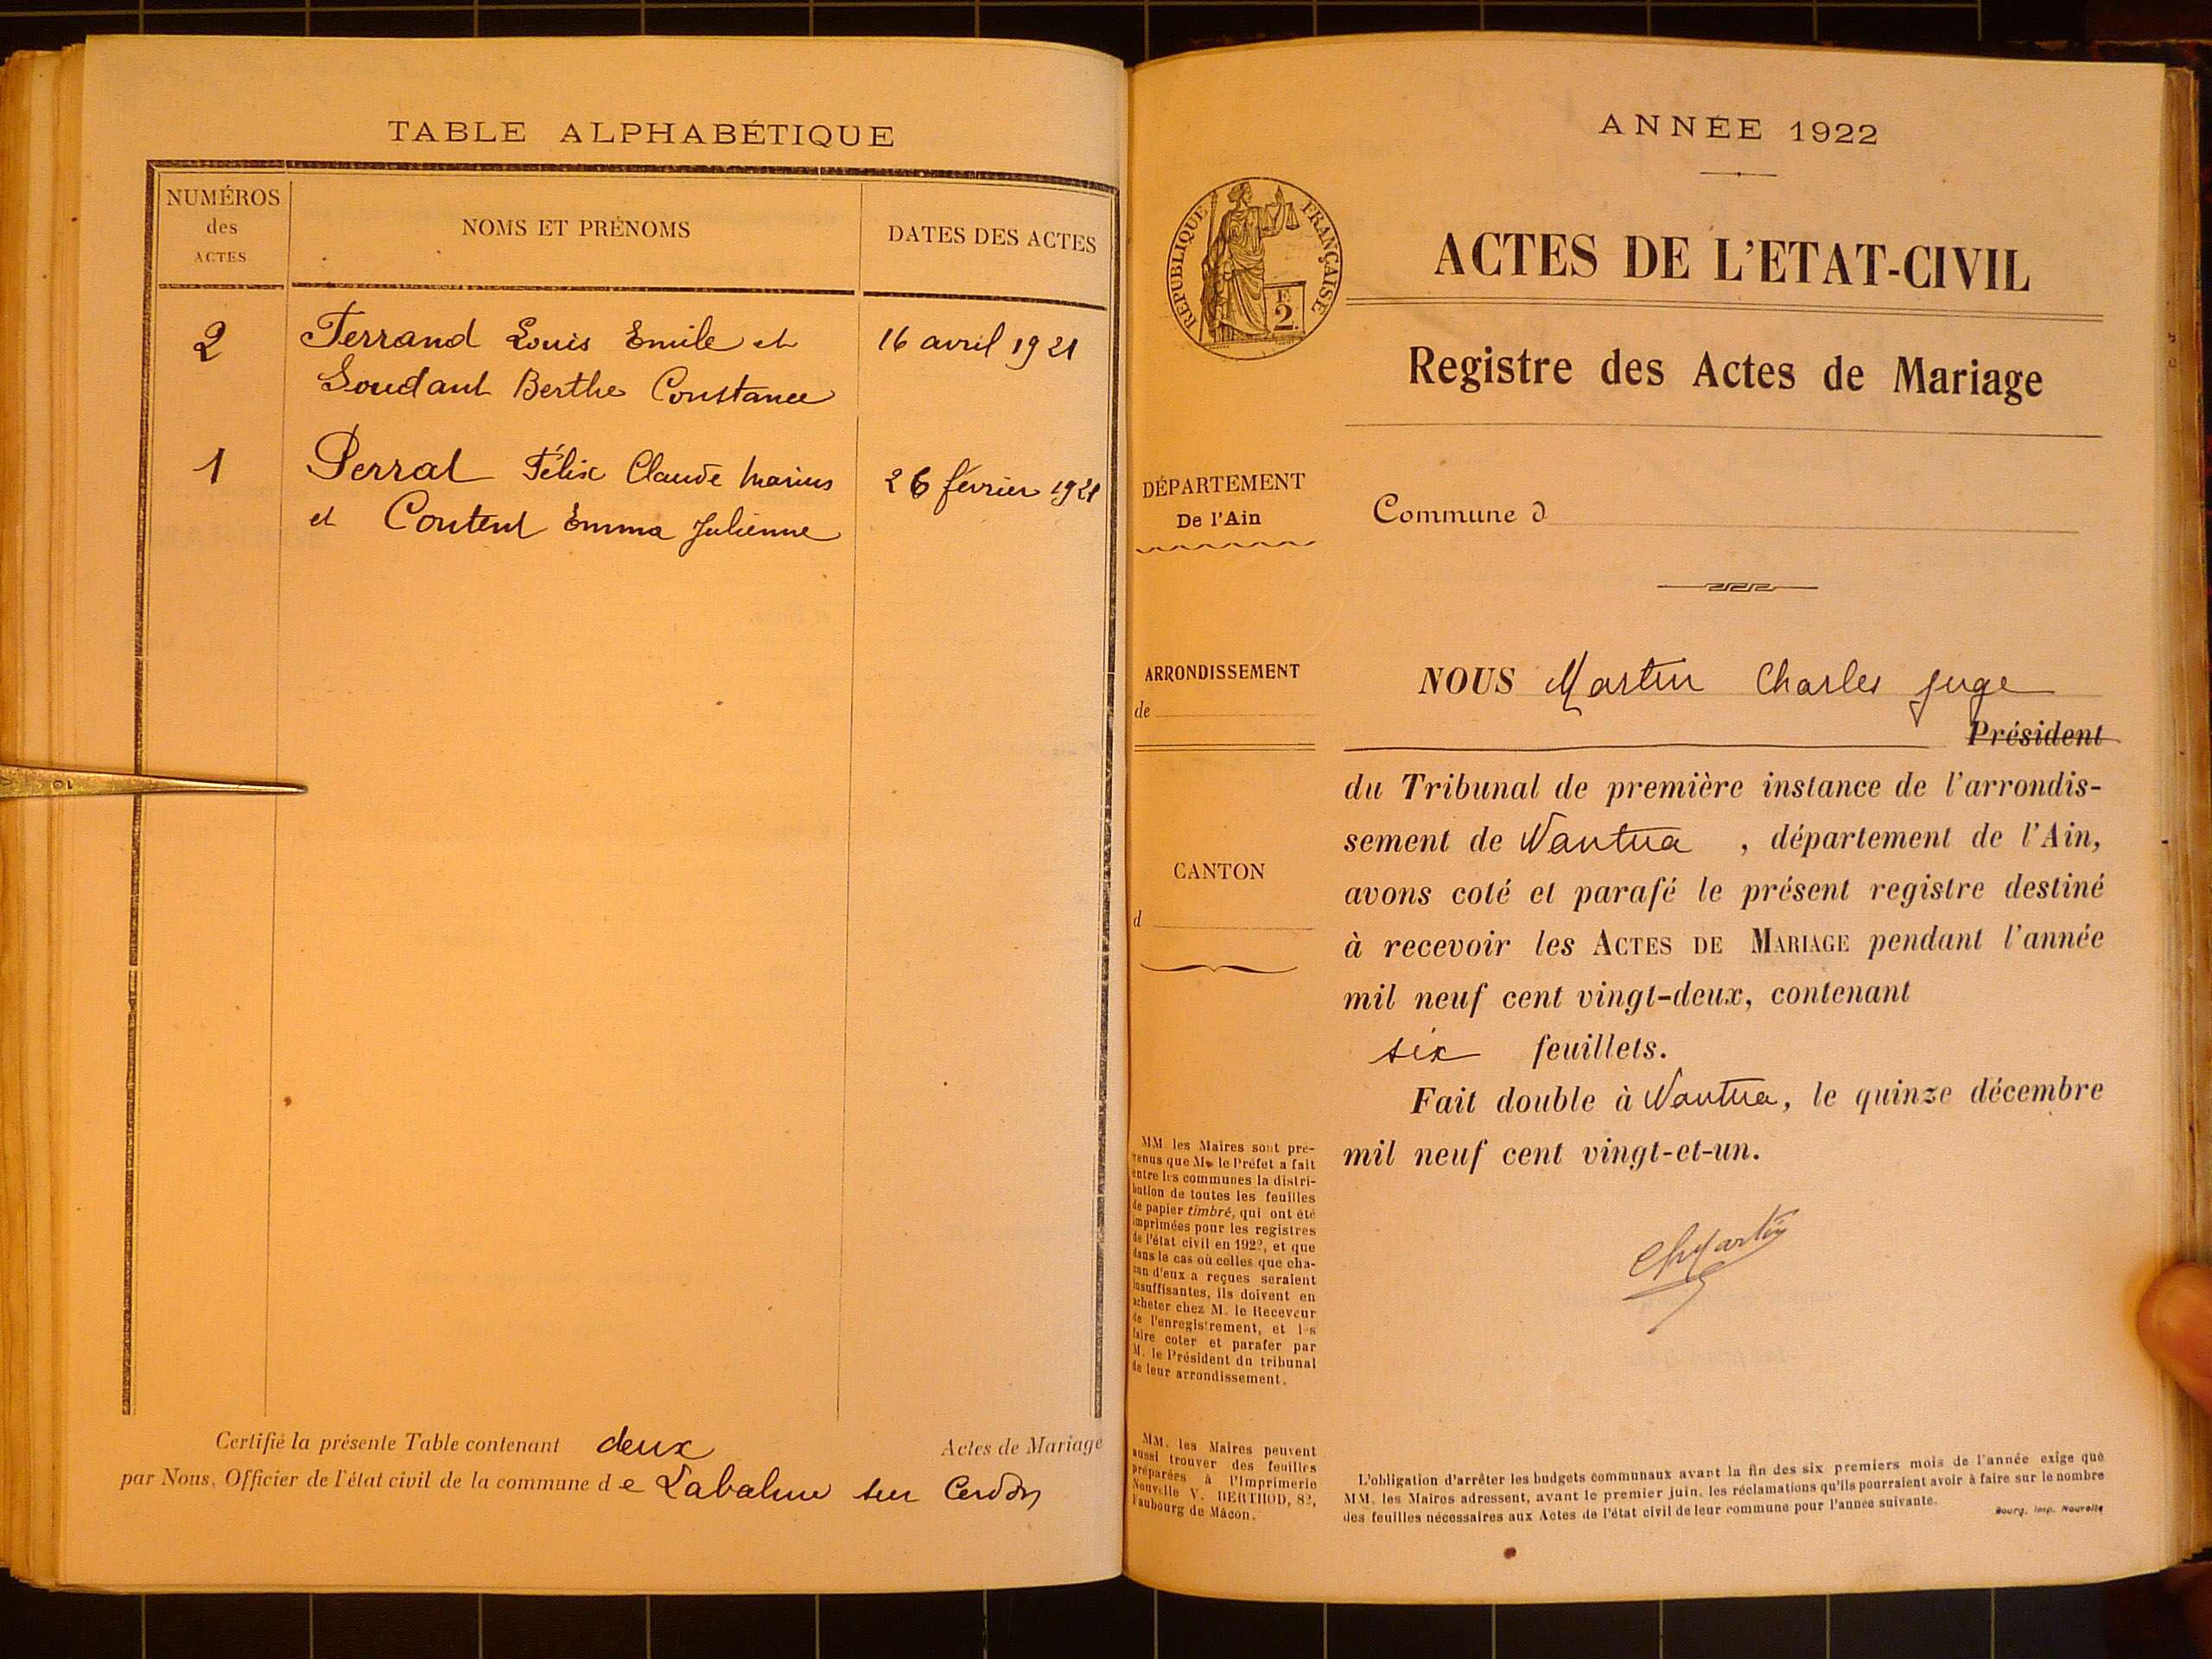 TABLE ALPHABÉTIQUE
NUMÉROS
des
ACTES
NOMS ET PRÉNOMS
DATES DES ACTES
2
Ferrand Louis Emile et
16 avril 1921
Soudant Berthe Constance
1
Perral Félix Claude Marius
26 février 1921
et Content Emma Julienne
Certifié la présente Table contenant deux Actes de Mariage
par Nous, Officier de l'état civil de la commune de Labalme sur Cerdon
ANNÉE 1922
RÉPUBLIQUE FRANÇAISE
E
2.
ACTES DE L'ETAT-CIVIL
Registre des Actes de Mariage
DÉPARTEMENT
De l'Ain
Commune d
ARRONDISSEMENT
de
CANTON
d
NOUS Martin Charles juge
Président
du Tribunal de première instance de l'arrondis-
sement de Nantua, département de l'Ain,
avons coté et parafé le présent registre destiné
à recevoir les ACTES DE MARIAGE pendant l'année
mil neuf cent vingt-deux, contenant
six feuillets.
Fait double à Nantua, le quinze décembre
mil neuf cent vingt-et-un.
ChMartin
MM. les Maires sont pré-
venus que M. le Préfet a fait
entre les communes la distri-
bution de toutes les feuilles
de papier timbré, qui ont été
imprimées pour les registres
de l'état civil en 1922, et que
dans le cas où celles que cha-
cun d'eux a reçues seraient
insuffisantes, ils doivent en
acheter chez M. le Receveur
de l'enregistrement, et les
faire coter et parafer par
M. le Président du tribunal
de leur arrondissement.
MM. les Maires peuvent
aussi trouver des feuilles
préparées à l'Imprimerie
Nouvelle V. BERTHOD, 82,
Faubourg de Mâcon.
L'obligation d'arrêter les budgets communaux avant la fin des six premiers mois de l'année exige que
MM. les Maires adressent, avant le premier juin, les réclamations qu'ils pourraient avoir à faire sur le nombre
des feuilles nécessaires aux Actes de l'état civil de leur commune pour l'année suivante.
Bourg, Imp. Nouvelle